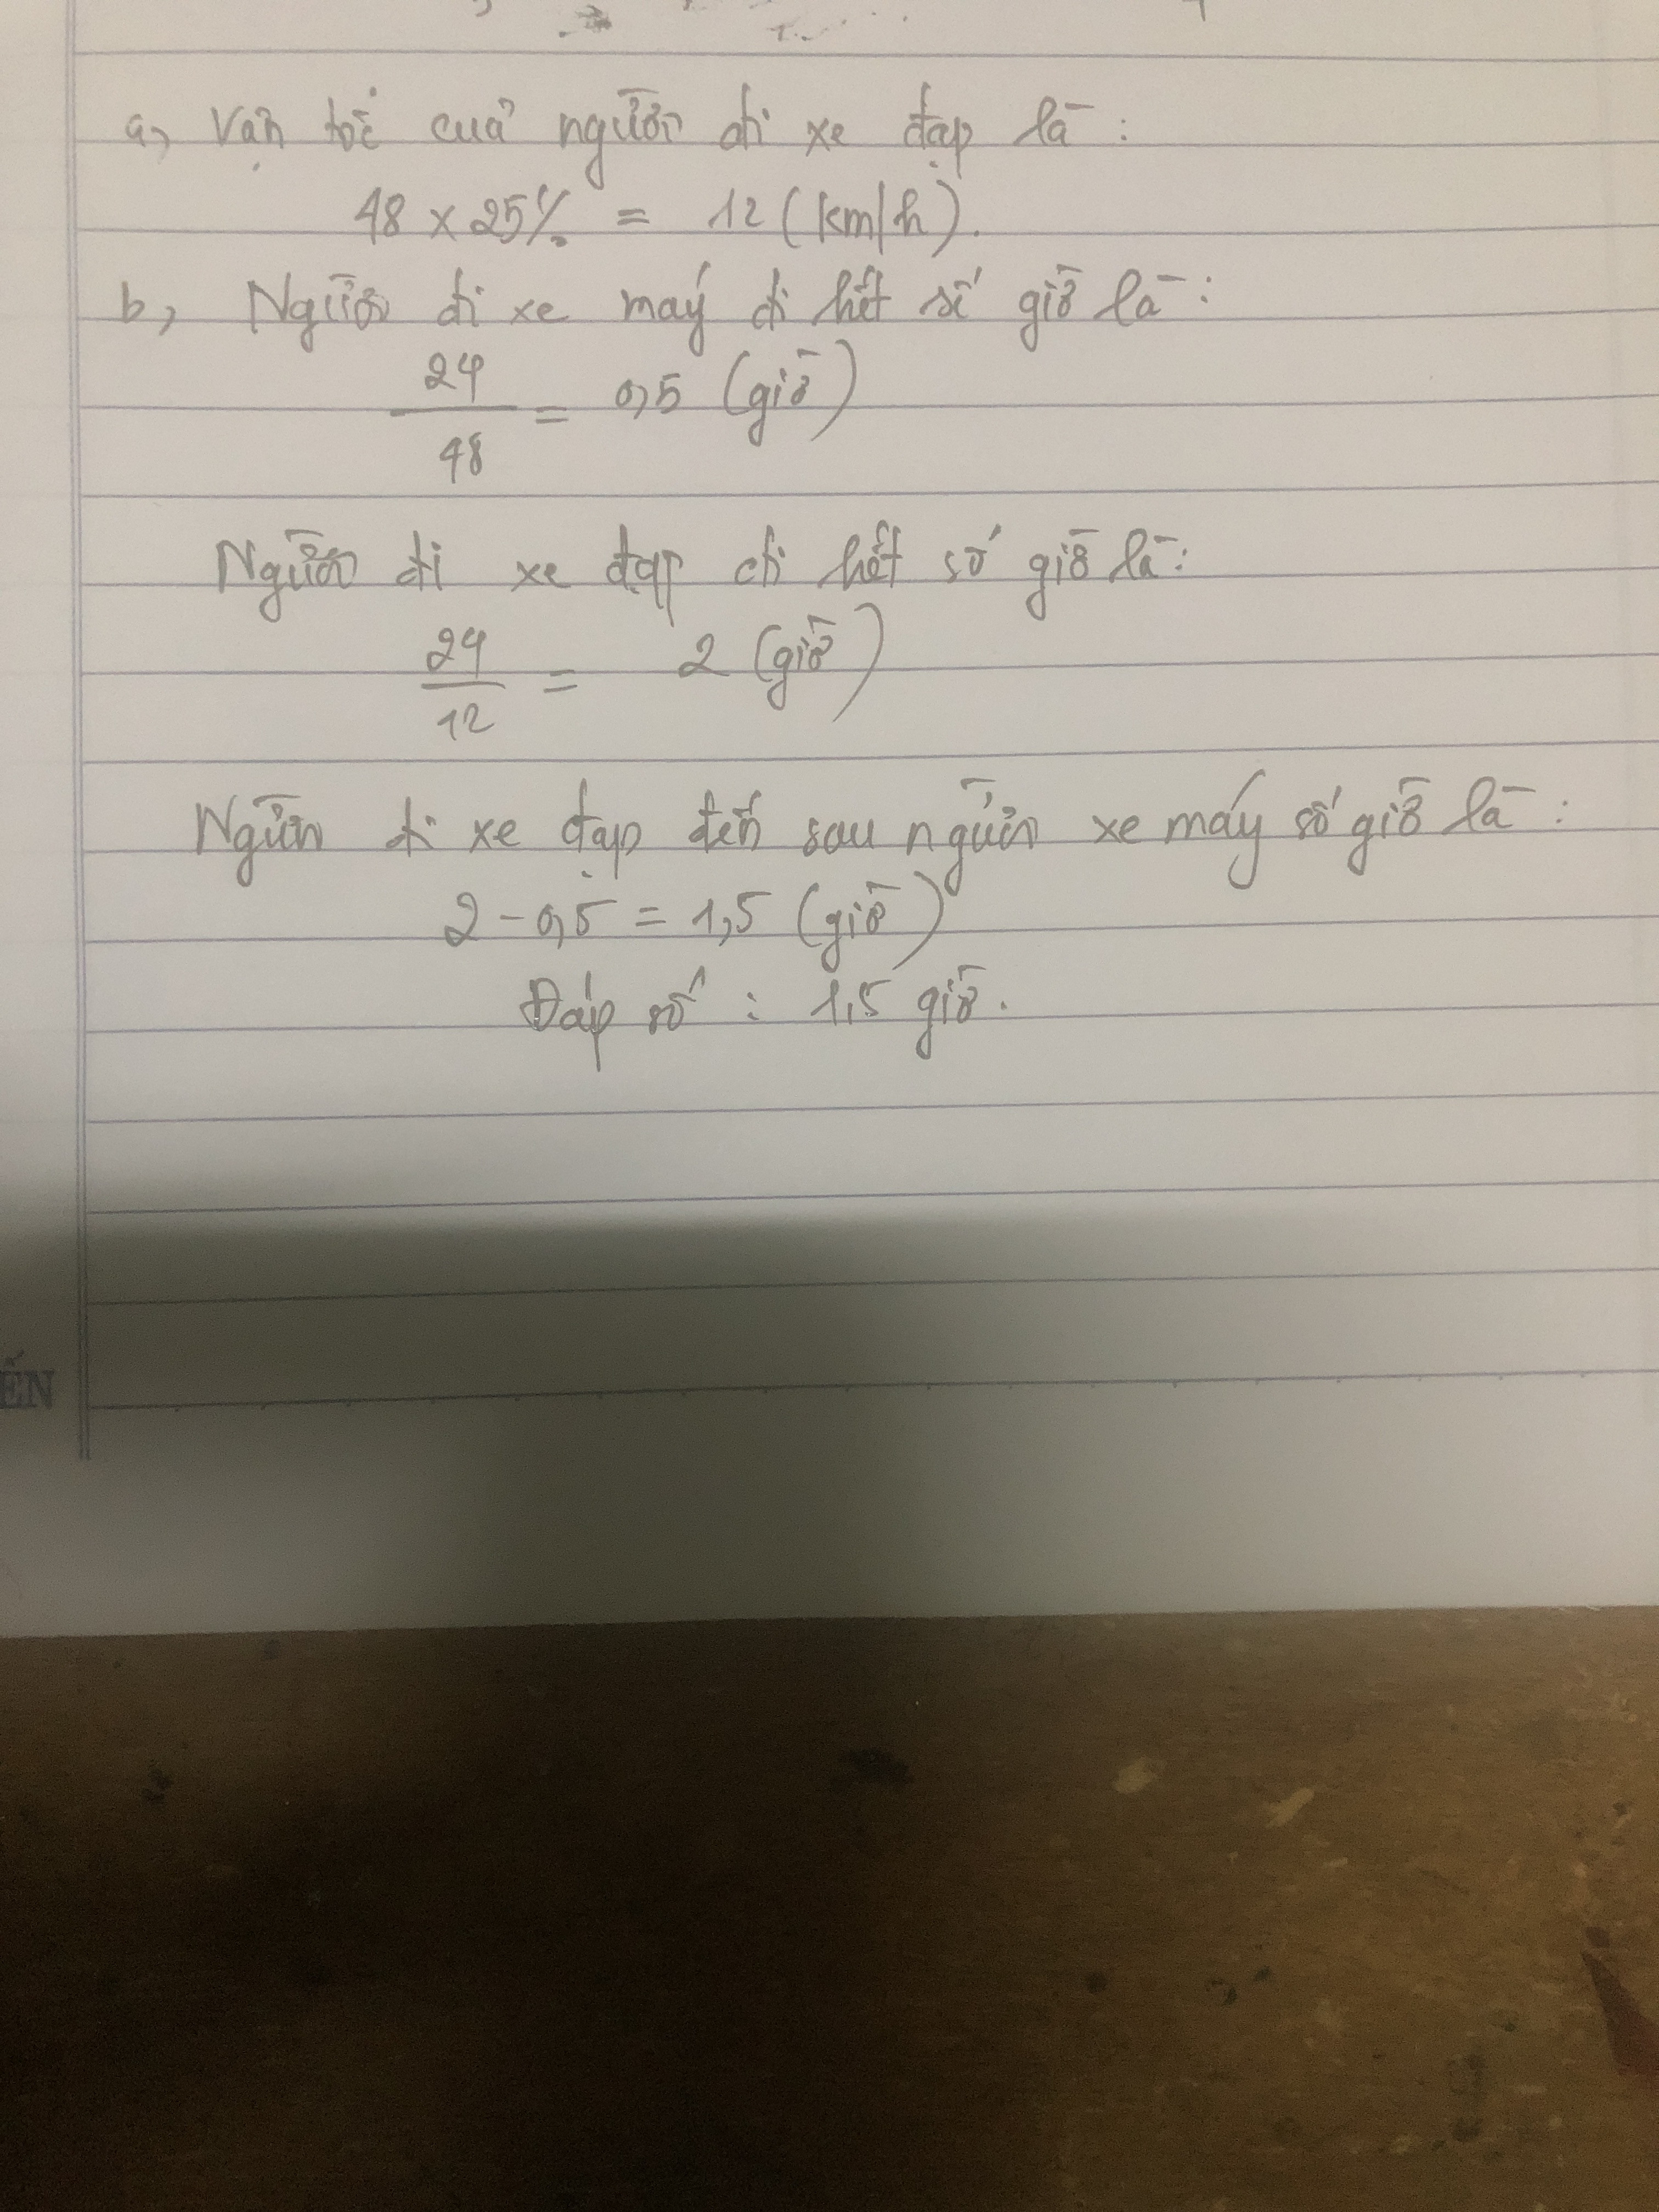 a, Vận tốc của người đi xe đạp là :
48 x 25% = 12 (km/h).
b, Người đi xe máy đi hết số giờ là :
24
48
= 0,5 (giờ)
Người đi xe đạp đi hết số giờ là :
24
12
= 2 (giờ)
Người đi xe đạp đến sau người xe máy số giờ là :
2 - 0,5 = 1,5 (giờ)
Đáp số : 1,5 giờ.
ẾN